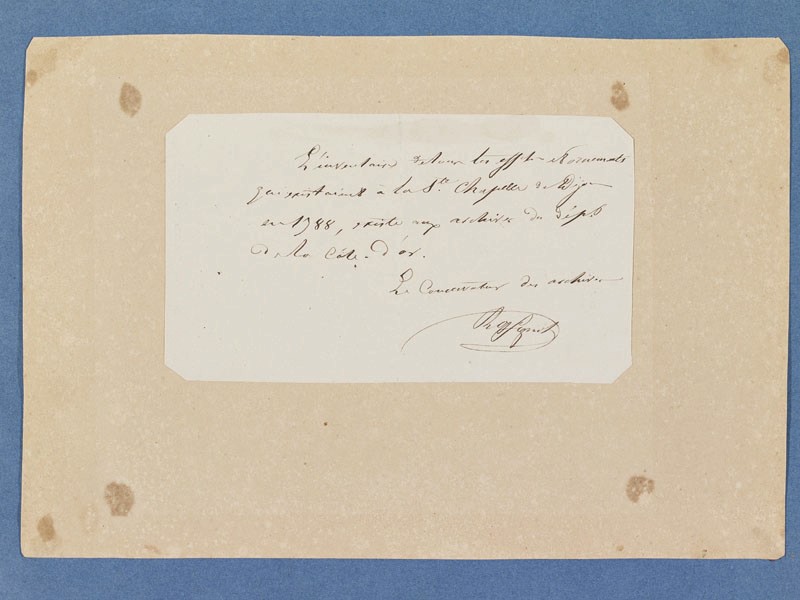 L'inventaire de tous les effets & ornements
qui existaient à la Ste Chapelle de Dijon
en 1788, existe aux archives du Dépt
de la Côte-d'or.
Le Conservateur des archives